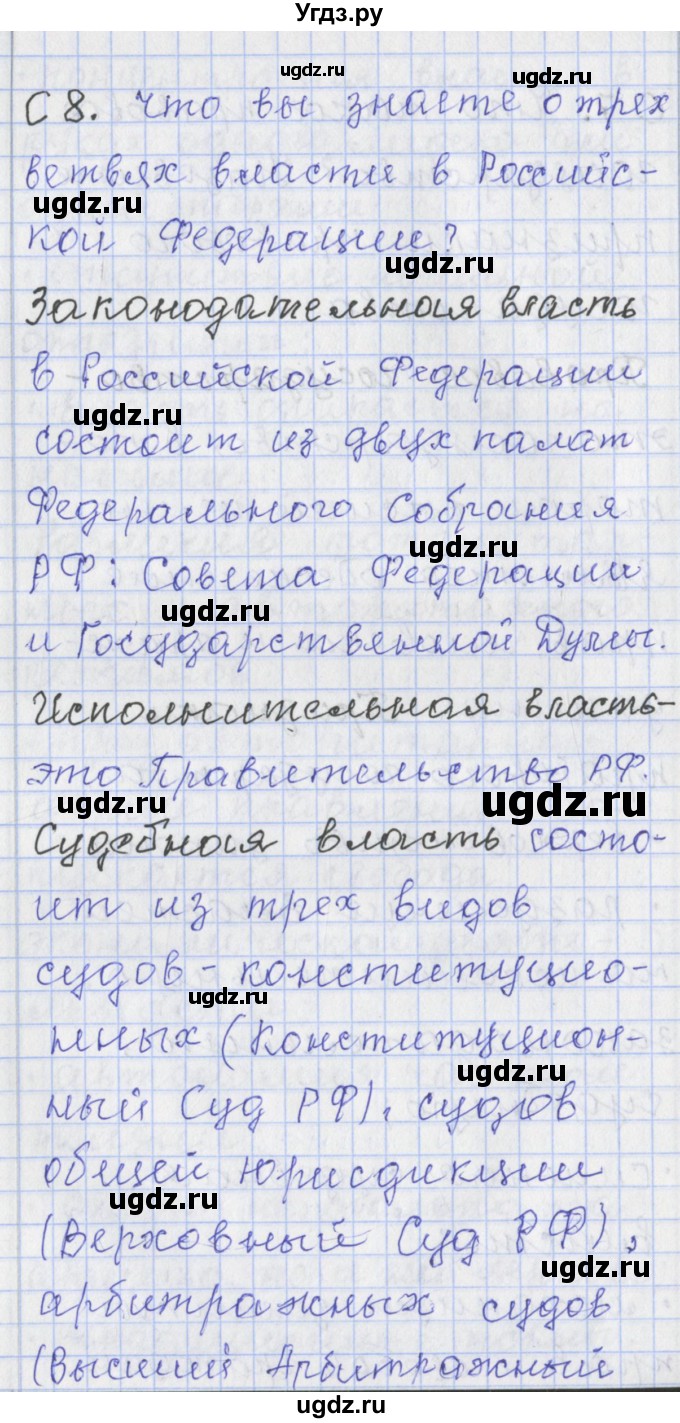 Угдз.ру
ugdz.ru
ugdz.ru
С 8. Что вы знаете о трех
ветвях власти в Российс-
ugdz.ru
кой Федерации?
ugdz.ru
Законодательная власть
в Российской Федерации
ugdz.ru
состоит из двух палат
Федерального Собрания
ugdz.ru
РФ: Совета Федерации
ugdz.ru
и Государственной Думы.
Исполнительная власть-
это Правительство РФ.
ugdz.ru
ugdz.ru
Судебная власть состо-
ит из трех видов
судов - конституцио-
ugdz.ru
нных (Конституцион-
ugdz.ru
ный Суд РФ), судов
общей юрисдикции
ugdz.ru
(Верховный Суд РФ),
ugdz.ru
арбитражных судов
(Высший Арбитражный
ugdz.ru